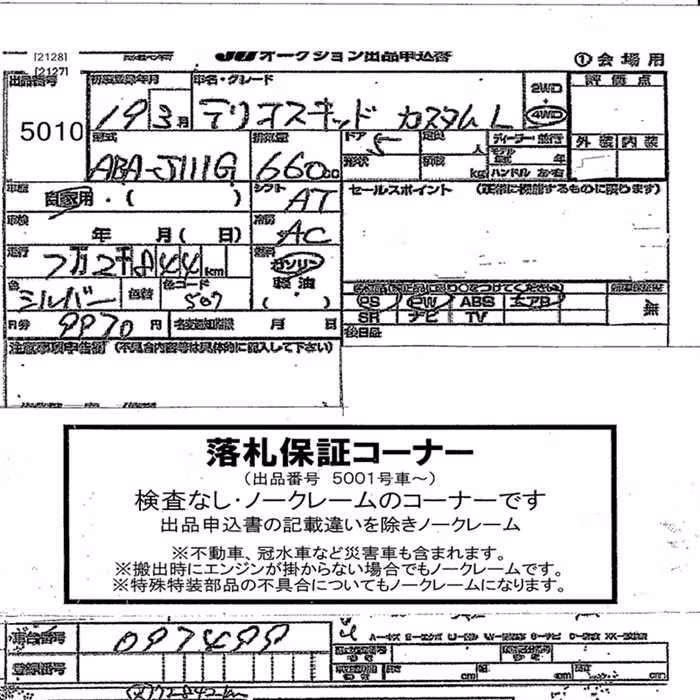 [2128]
[2127]
JU オークション出品申込書
①会場用
出品番号
5010
初度登録年月
19 3月
車名・グレード
テリオスキッド カスタムL
2WD
・
4WD
評価点
型式
ABA-J111G
排気量
660cc
ドア
5
定員
人
形状
積載
kg
ディーラー・並行
モデル
年
ハンドル 左・右
外装
内装
車歴
自家用・( )
シフト
AT
セールスポイント (正常に機能するものに限ります)
車検
年 月( 日)
冷房
AC
走行
7万2千 44km
燃料
ガソリン
軽油
( ・ )
色
シルバー
色替
色コード
PS PW ABS エアB
SR ナビ TV
無
R券
9970円
名変期限 月 日
後日品
注意事項申告書 (不具合内容等は具体的に記入して下さい)
落札保証コーナー
(出品番号 5001号車～)
検査なし・ノークレームのコーナーです
出品申込書の記載違いを除きノークレーム
※不動車、冠水車など災害車も含まれます。
※搬出時にエンジンが掛からない場合でもノークレームです。
※特殊特装部品の不具合についてもノークレームになります。
車台番号
097499
登録番号
長さ cm
幅 cm
高さ cm